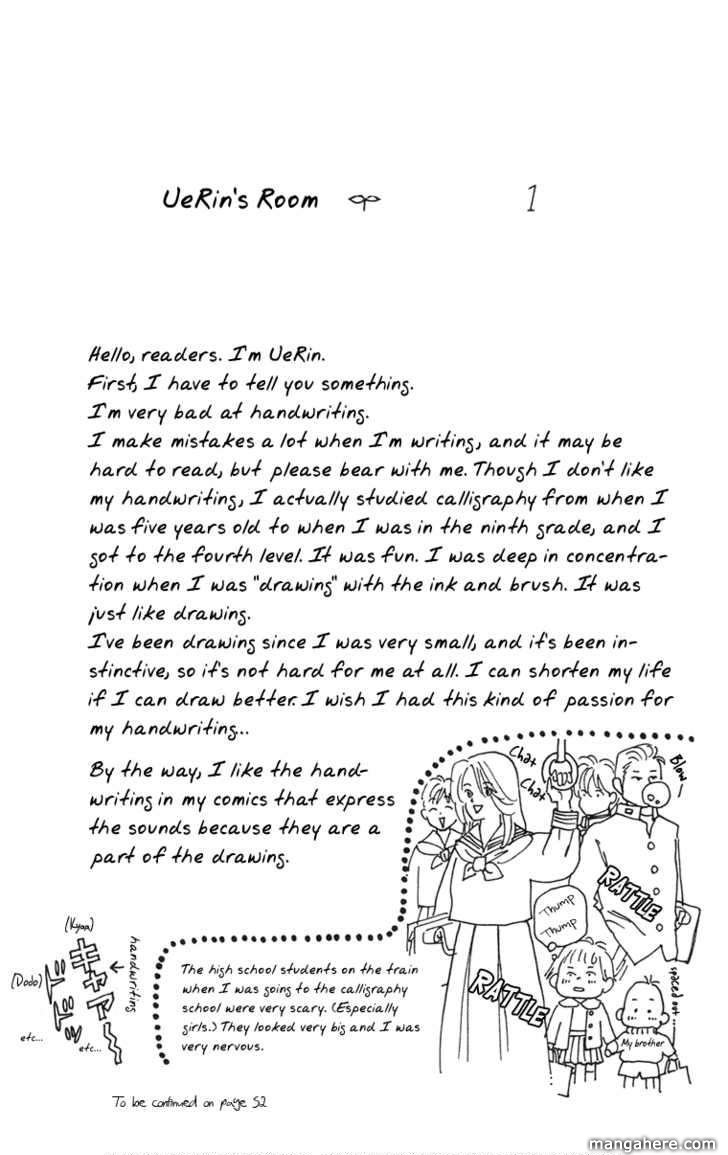 UeRin's Room
1
Hello, readers. I'm UeRin.
First, I have to tell you something.
I'm very bad at handwriting.
I make mistakes a lot when I'm writing, and it may be
hard to read, but please bear with me. Though I don't like
my handwriting, I actually studied calligraphy from when I
was five years old to when I was in the ninth grade, and I
got to the fourth level. It was fun. I was deep in concentra-
tion when I was "drawing" with the ink and brush. It was
just like drawing.
I've been drawing since I was very small, and it's been in-
stinctive, so it's not hard for me at all. I can shorten my life
if I can draw better. I wish I had this kind of passion for
my handwriting...
By the way, I like the hand-
writing in my comics that express
the sounds because they are a
part of the drawing.
Chat
Chat
Blow—
RATTLE
Thump
Thump
RATTLE
spaced out...
My brother
(Kyaa)
キャアー
handwriting
(Dodo)
ドドッ
etc...
etc...
The high school students on the train
when I was going to the calligraphy
school were very scary. (Especially
girls.) They looked very big and I was
very nervous.
To be continued on page 52
mangahere.com